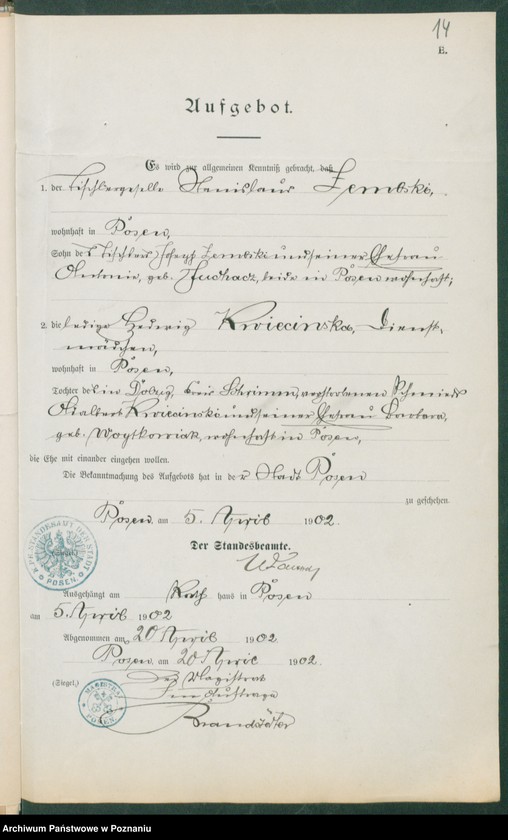 14
E.
Aufgebot.
Es wird zur allgemeinen Kenntniß gebracht, daß
1. der Tischlergeselle Stanislaus Zembski,
wohnhaft in Posen,
Sohn des Tischlers Joseph Zembski und seiner Ehefrau
Antonie, geb. beide in Posen wohnhaft;
2. die ledige Hedwig Kwiecinska, Dienst-
mädchen,
wohnhaft in Posen,
Tochter des in Dolzig, Kreis Schrimm, verstorbenen Schmieds
Adalbert Kwiecinski und seiner Ehefrau Barbara,
geb. Woytkowiak, wohnhaft in Posen,
die Ehe mit einander eingehen wollen.
Die Bekanntmachung des Aufgebots hat in der Stadt Posen
zu geschehen.
Posen, am 5. April 1902.
Der Standesbeamte.
PR. STANDESAMT DER STADT POSEN.
Ausgehängt am Rathhaus in Posen
am 5. April 1902
Abgenommen am 20 April 1902.
Posen, am 20 April 1902.
Der Magistrat
(Siegel.) Im Auftrage
MAGISTRAT POSEN.
Brandstäter
Archiwum Państwowe w Poznaniu